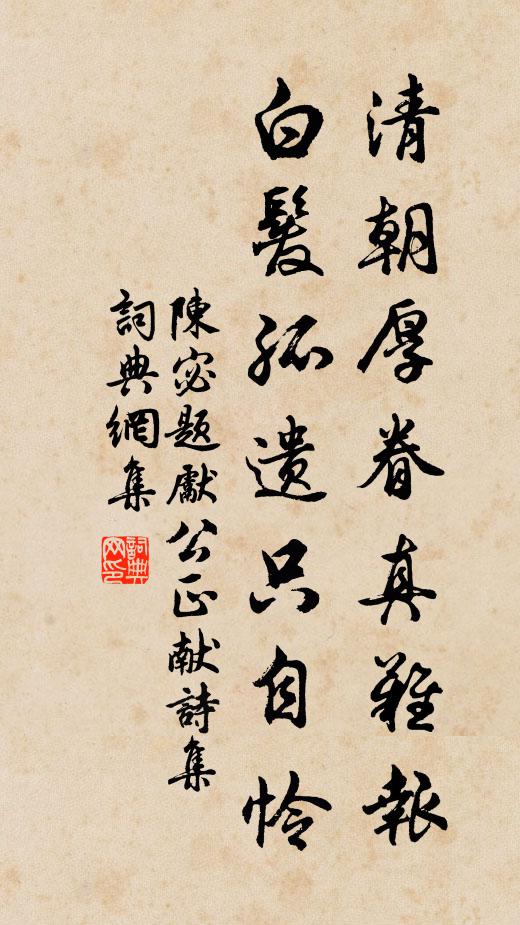 清朝厚眷真難報
白髮孤遺只自憐
陳宓題獻公正献詩集
詞典網集
詞典網印